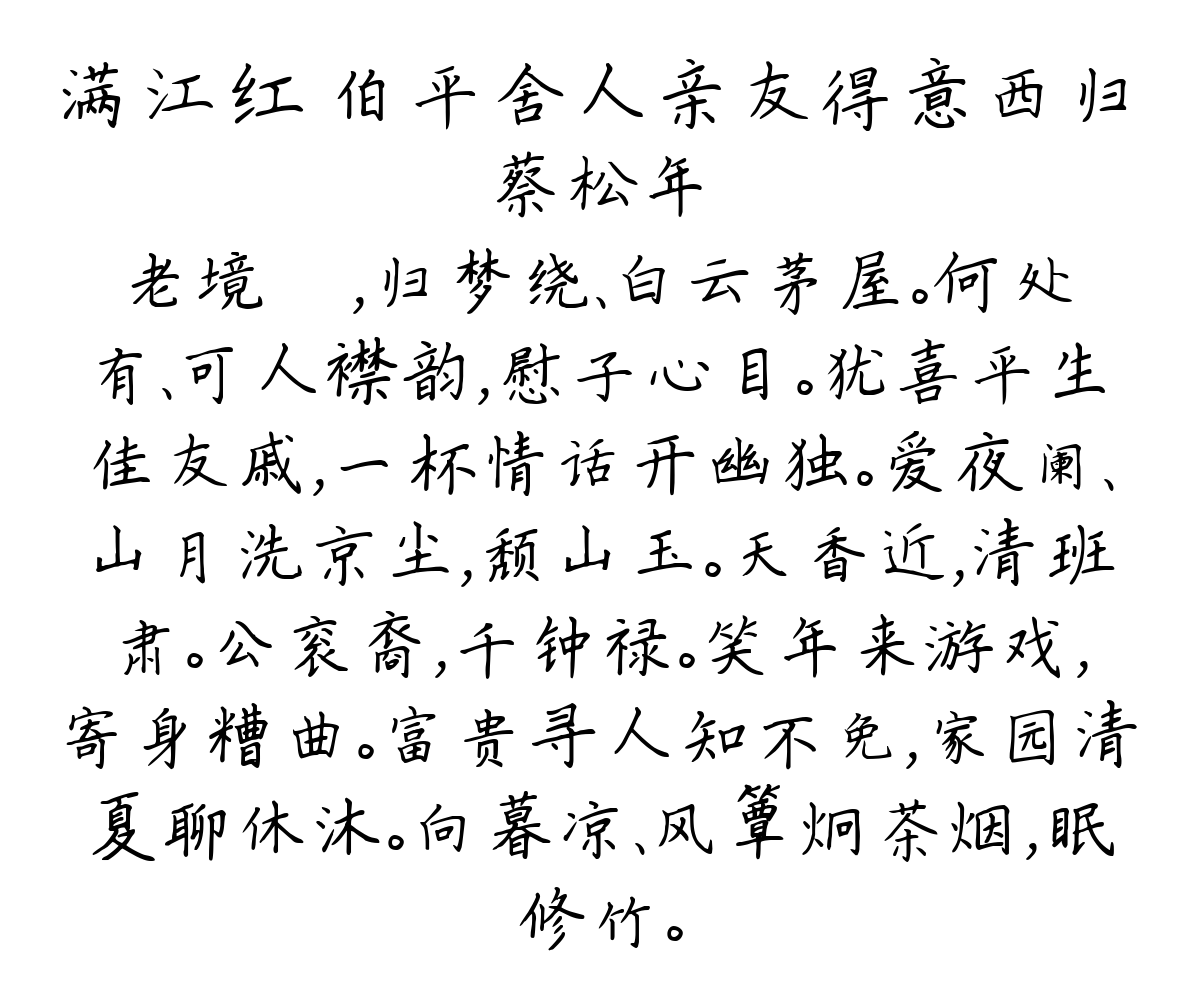 满江红 伯平舍人亲友得意西归
蔡松年
老境 ,归梦绕、白云茅屋。何处
有、可人襟韵,慰子心目。犹喜平生
佳友戚,一杯情话开幽独。爱夜阑、
山月洗京尘,颓山玉。天香近,清班
肃。公衮裔,千钟禄。笑年来游戏,
寄身糟曲。富贵寻人知不免,家园清
夏聊休沐。向暮凉、风簟炯茶烟,眠
修竹。